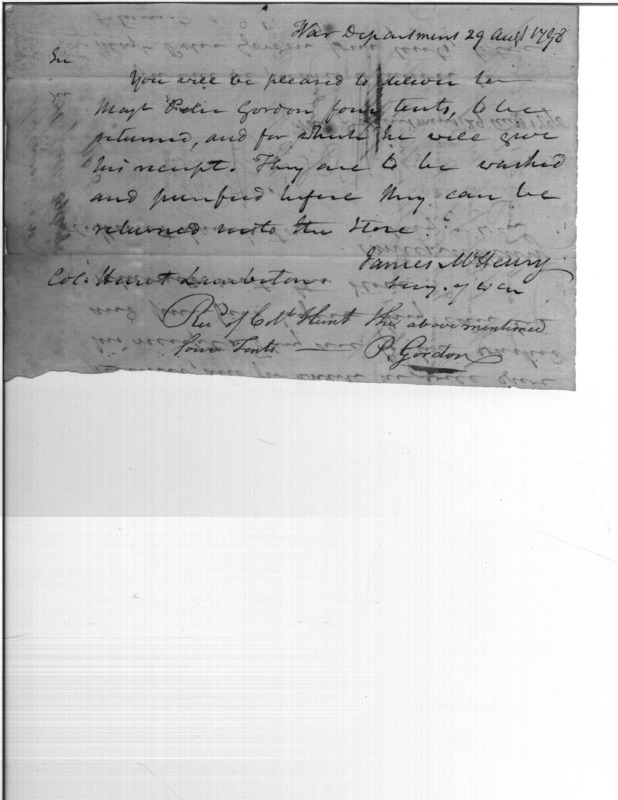 War Department 29 Augt 1798
Sir
You will be pleased to deliver to
Majr Peter Gordon four tents, to be
returned, and for which he will give
his receipt. They are to be washed
and purified before they can be
returned into the Store.
James McHenry
Secy. of War
Col. Hunt Lamberton
Rec of Col. Hunt the above mentioned
Four Tents — P. Gordon